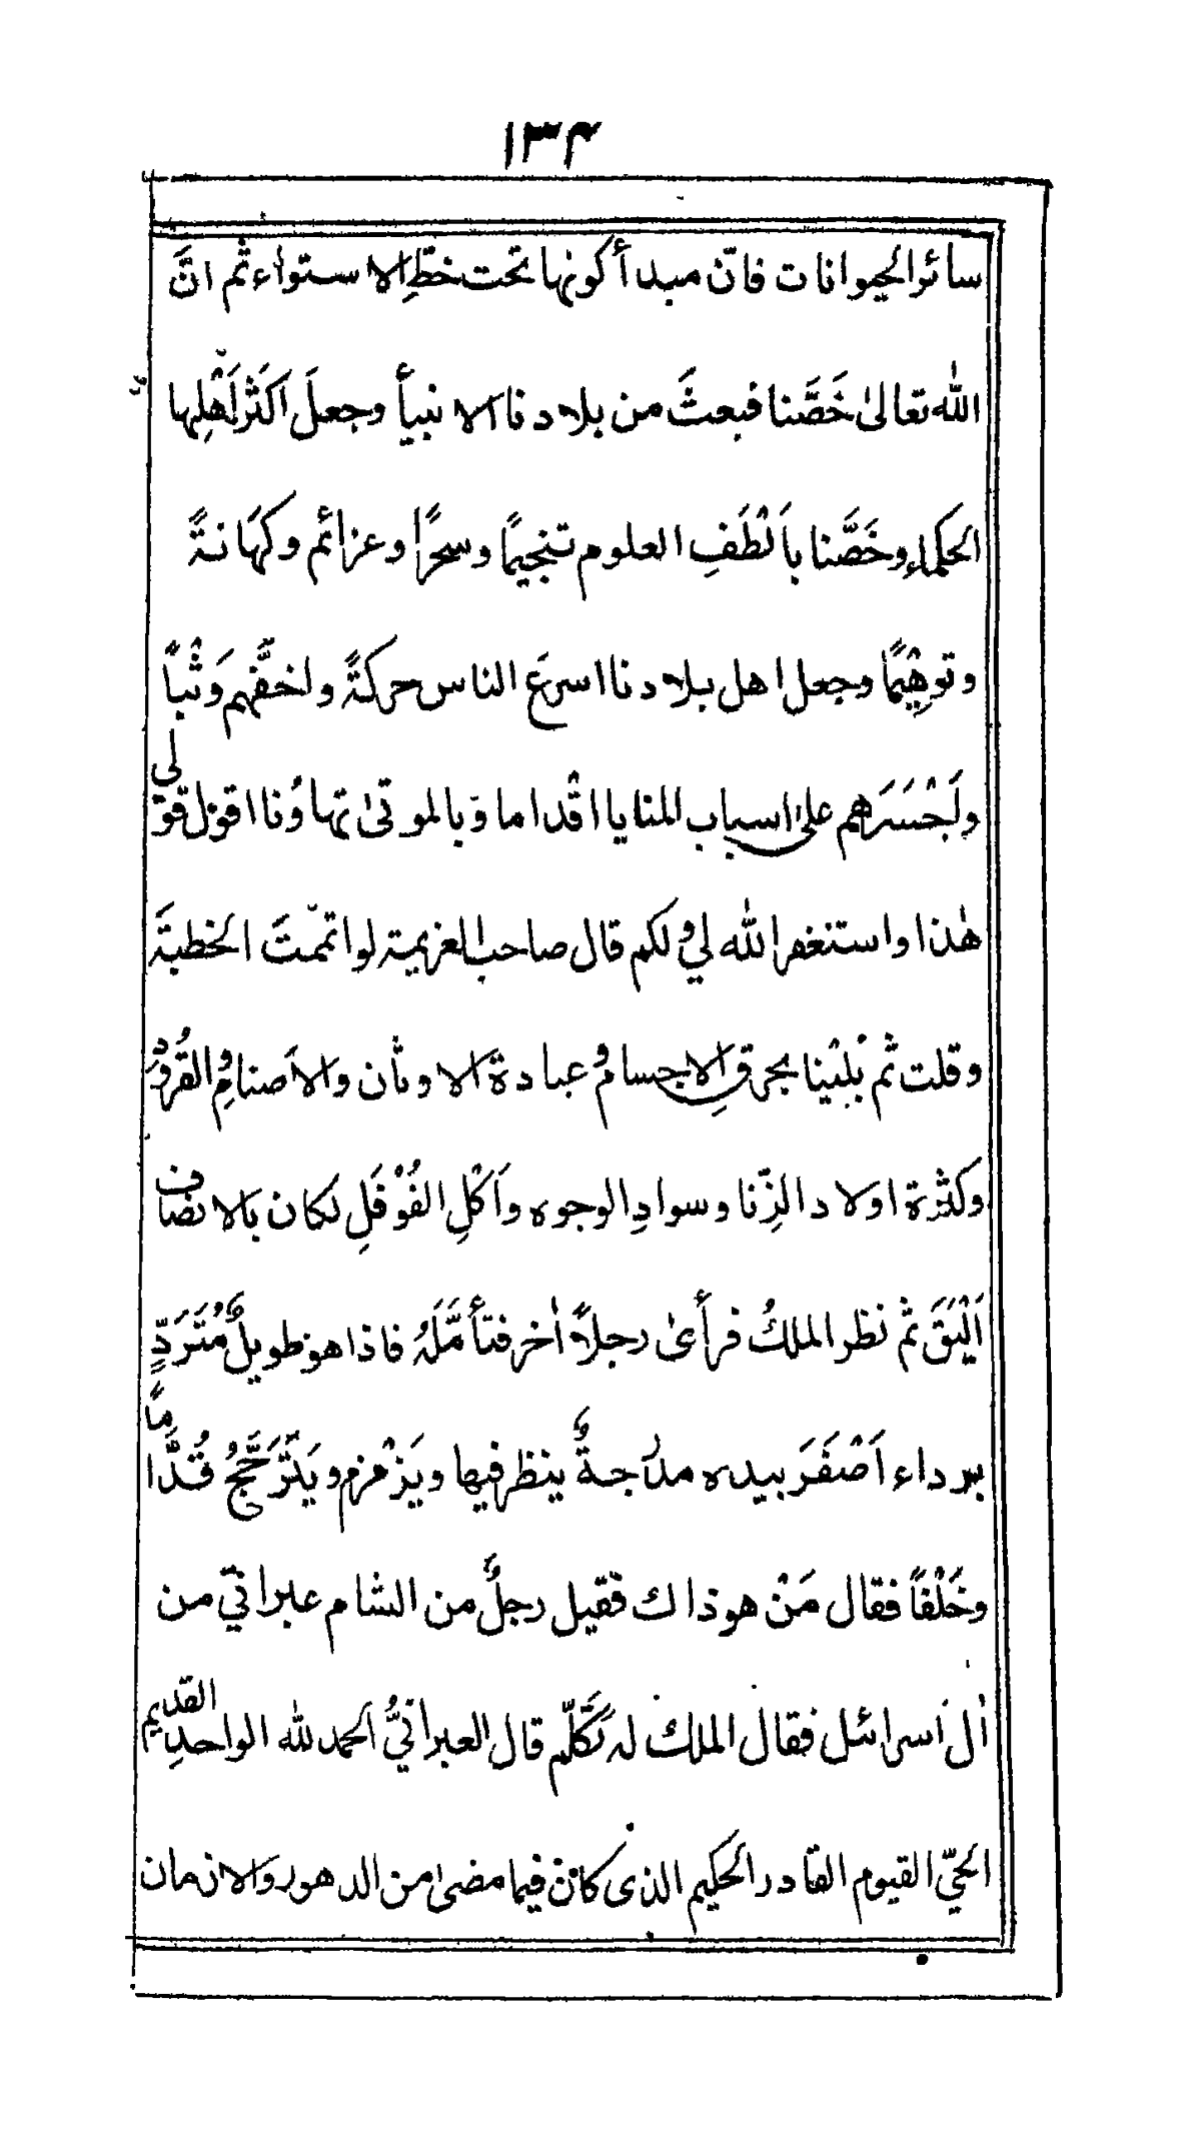 ۱۳۴
سائر الحيوانات فانّ مبدأ كونها تحت خطِّ الاستواء ثم انَّ
الله تعالىٰ خَصَّنا فبعثَ من بلادنا الانبيأ وجعلَ اَكثَرَ اَهْلِها
الحكماء وخَصَّنا بِاَلْطَفِ العلوم تنجيمًا وسحرًا وعزائم وكهَانةً
وتوهِيْمًا وجعل اهل بلادنا اسرعَ الناس حركةً واخفَّهم وَثْباً
واَجْسَرَهم علىٰ اسباب المنايا اقْداما وَبالموتىٰ تهاوُنا اقول قولى
هٰذا واستغفر الله لي ولكم قال صاحب العزيمة لو اتممّتَ الخطبةَ
وقلت ثم بُلِيْنا بحرقِ الاجسام وعبادة الاوثان والاَصنامِ والقُرود
وكثرة اولاد الزّنا وسوادِ الوجوه واَكْلِ الفُوْفَلِ لكان بالانصاف
اَلْيَقَ ثم نظر الملكُ فرأىٰ رجلاً اٰخر فتأمَّلَهُ فاذا هو طويلٌ مُتَرَدٍّ
برداء اَصْفَرَ بيده مدرجةٌ ينظر فيها ويَزْمزم ويَتَرَجَّحُ قُدَّاماً
وخَلْفاً فقال مَنْ هو ذاك فقيل رجلٌ من الشام عبرانيّ من
اٰل اسرائيل فقال الملك له تَكَلّم قال العبرانيُّ الحمد لله الواحدِ القديم
الحيّ القيوم القادر الحكيم الذى كانَ فيما مضىٰ من الدهور والازمان